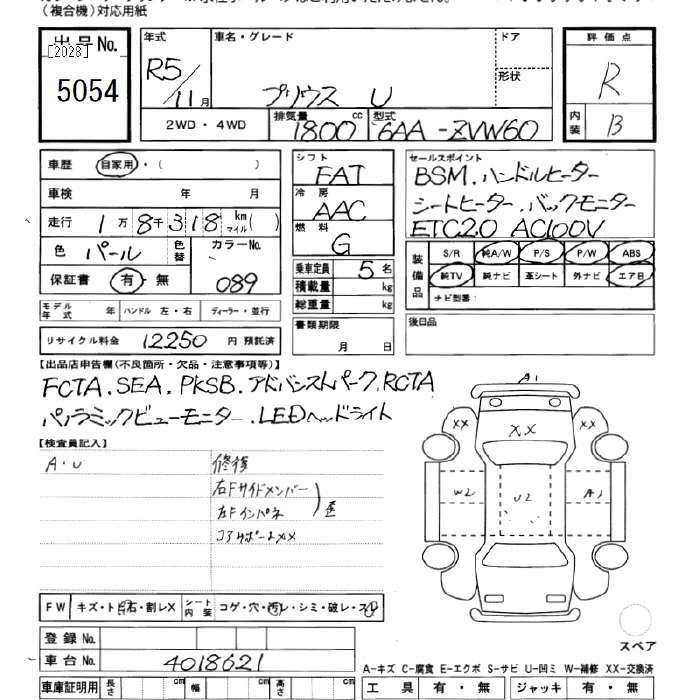 （複合機）対応用紙
出品No.
[2028]
5054
年式
R5/11月
車名・グレード
プリウス U
ドア
形状
2WD・4WD
排気量 1800 cc
型式 6AA-ZVW60
評価点
R
内装 B
車歴 自家用・（ ）
車検 年 月
走行 1万8千318 km マイル( )
色 パール 色替 カラーNo. 089
保証書 有・無
モデル年式 年 ハンドル 左・右 ディーラー・並行
リサイクル料金 12250 円 預託済
シフト FAT
冷房 AAC
燃料 G
乗車定員 5 名
積載量 kg
総重量 kg
書類期限
月 日
セールスポイント
BSM.ハンドルヒーター
シートヒーター.バックモニター
ETC2.0 AC100V
装備品
S/R 純A/W P/S P/W ABS
純TV 純ナビ 革シート 外ナビ エアB
ナビ型番：
後日品
【出品店申告欄(不良箇所・欠品・注意事項等)】
FCTA.SEA.PKSB.アドバンストパーク.RCTA
パノラミックビューモニター.LEDヘッドライト
【検査員記入】
A・U
修復
右Fサイドメンバー
左Fインパネ
コアサポートXX
A1
XX XX XX
W2 U2 A1
FW キズ・ト 石・割レX
シート内装 コゲ・穴・汚レ・シミ・破レ・スレ
登録No.
車台No. 4018621
スペア
A-キズ C-腐食 E-エクボ S-サビ U-凹ミ W-補修 XX-交換済
車庫証明用 長さ cm 幅 cm 高さ cm
工具 有・無 ジャッキ 有・無